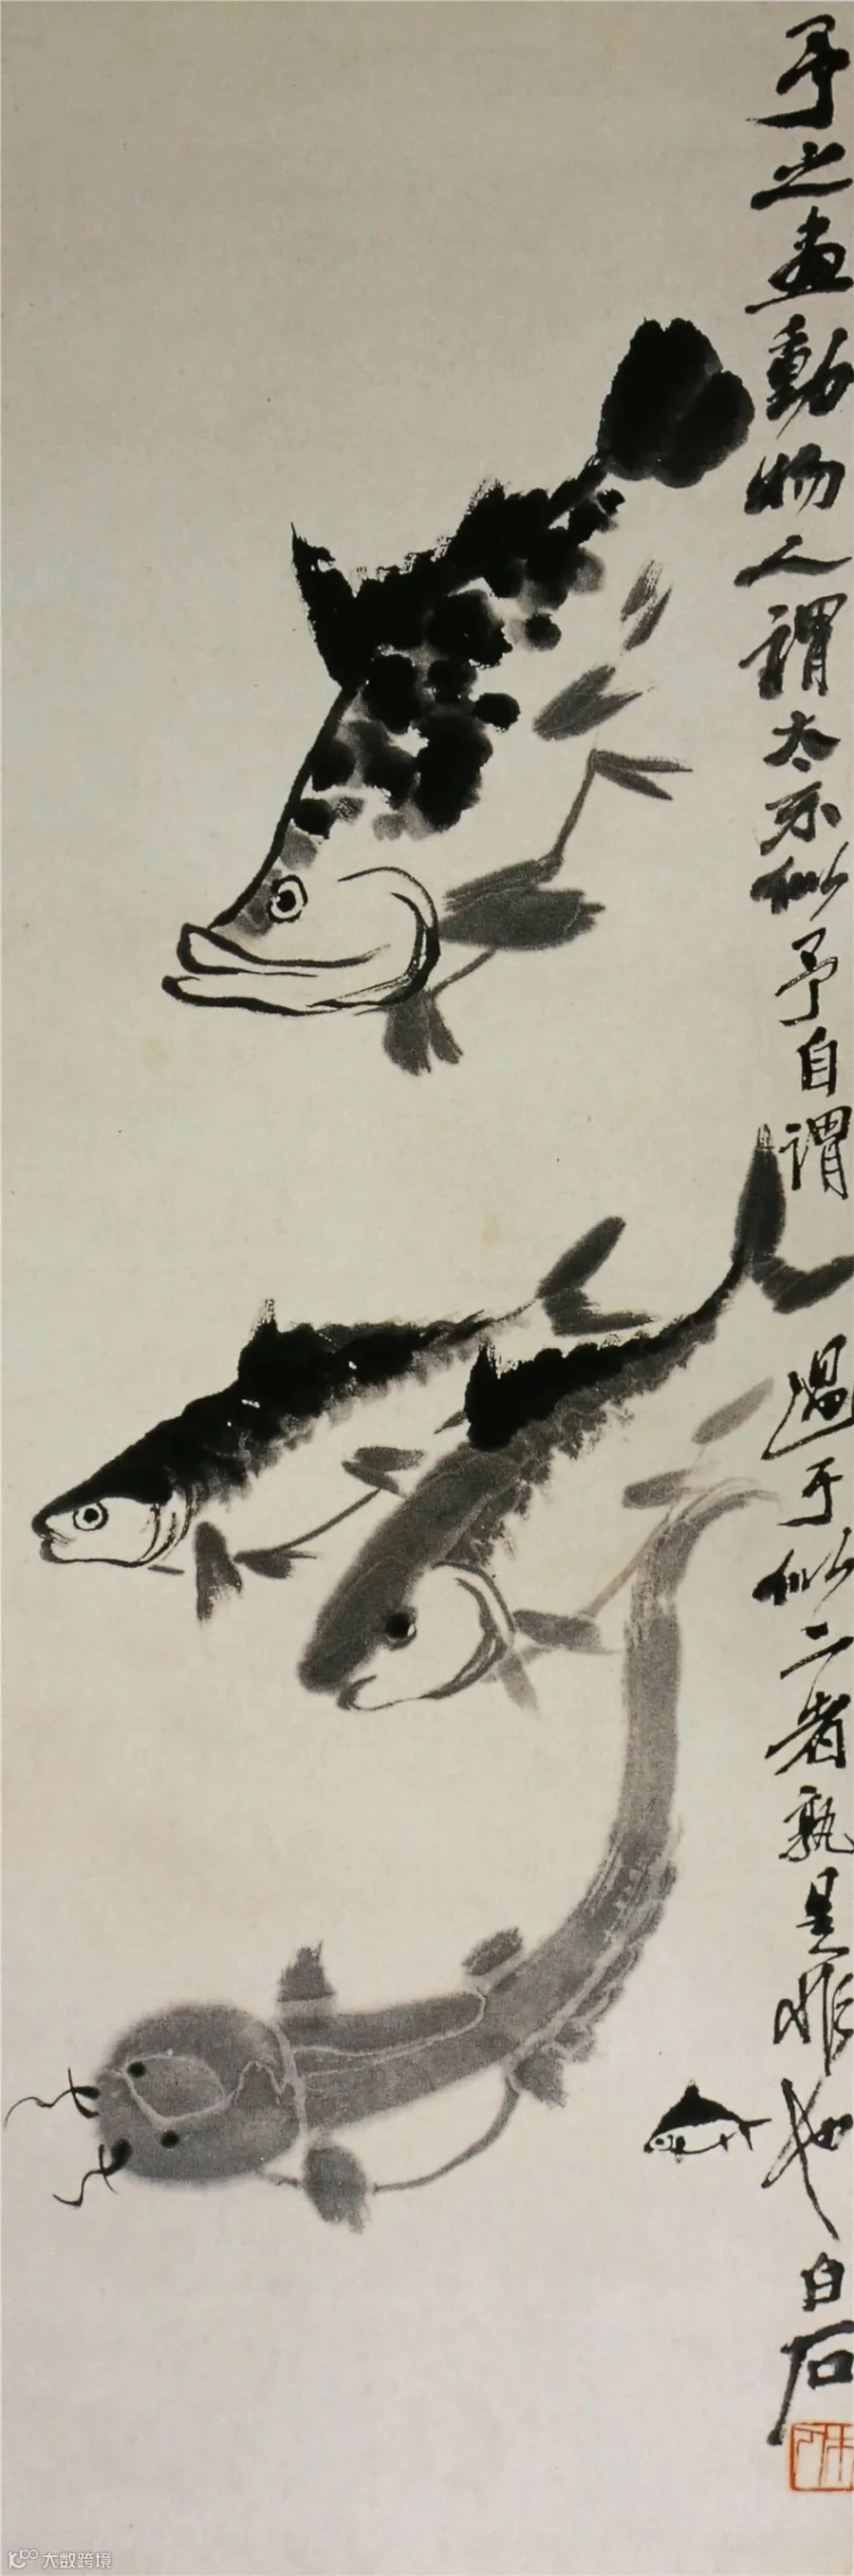 予之畫動物人謂太不似予自謂
過于似二者孰是非也白石
木人
大数跨境